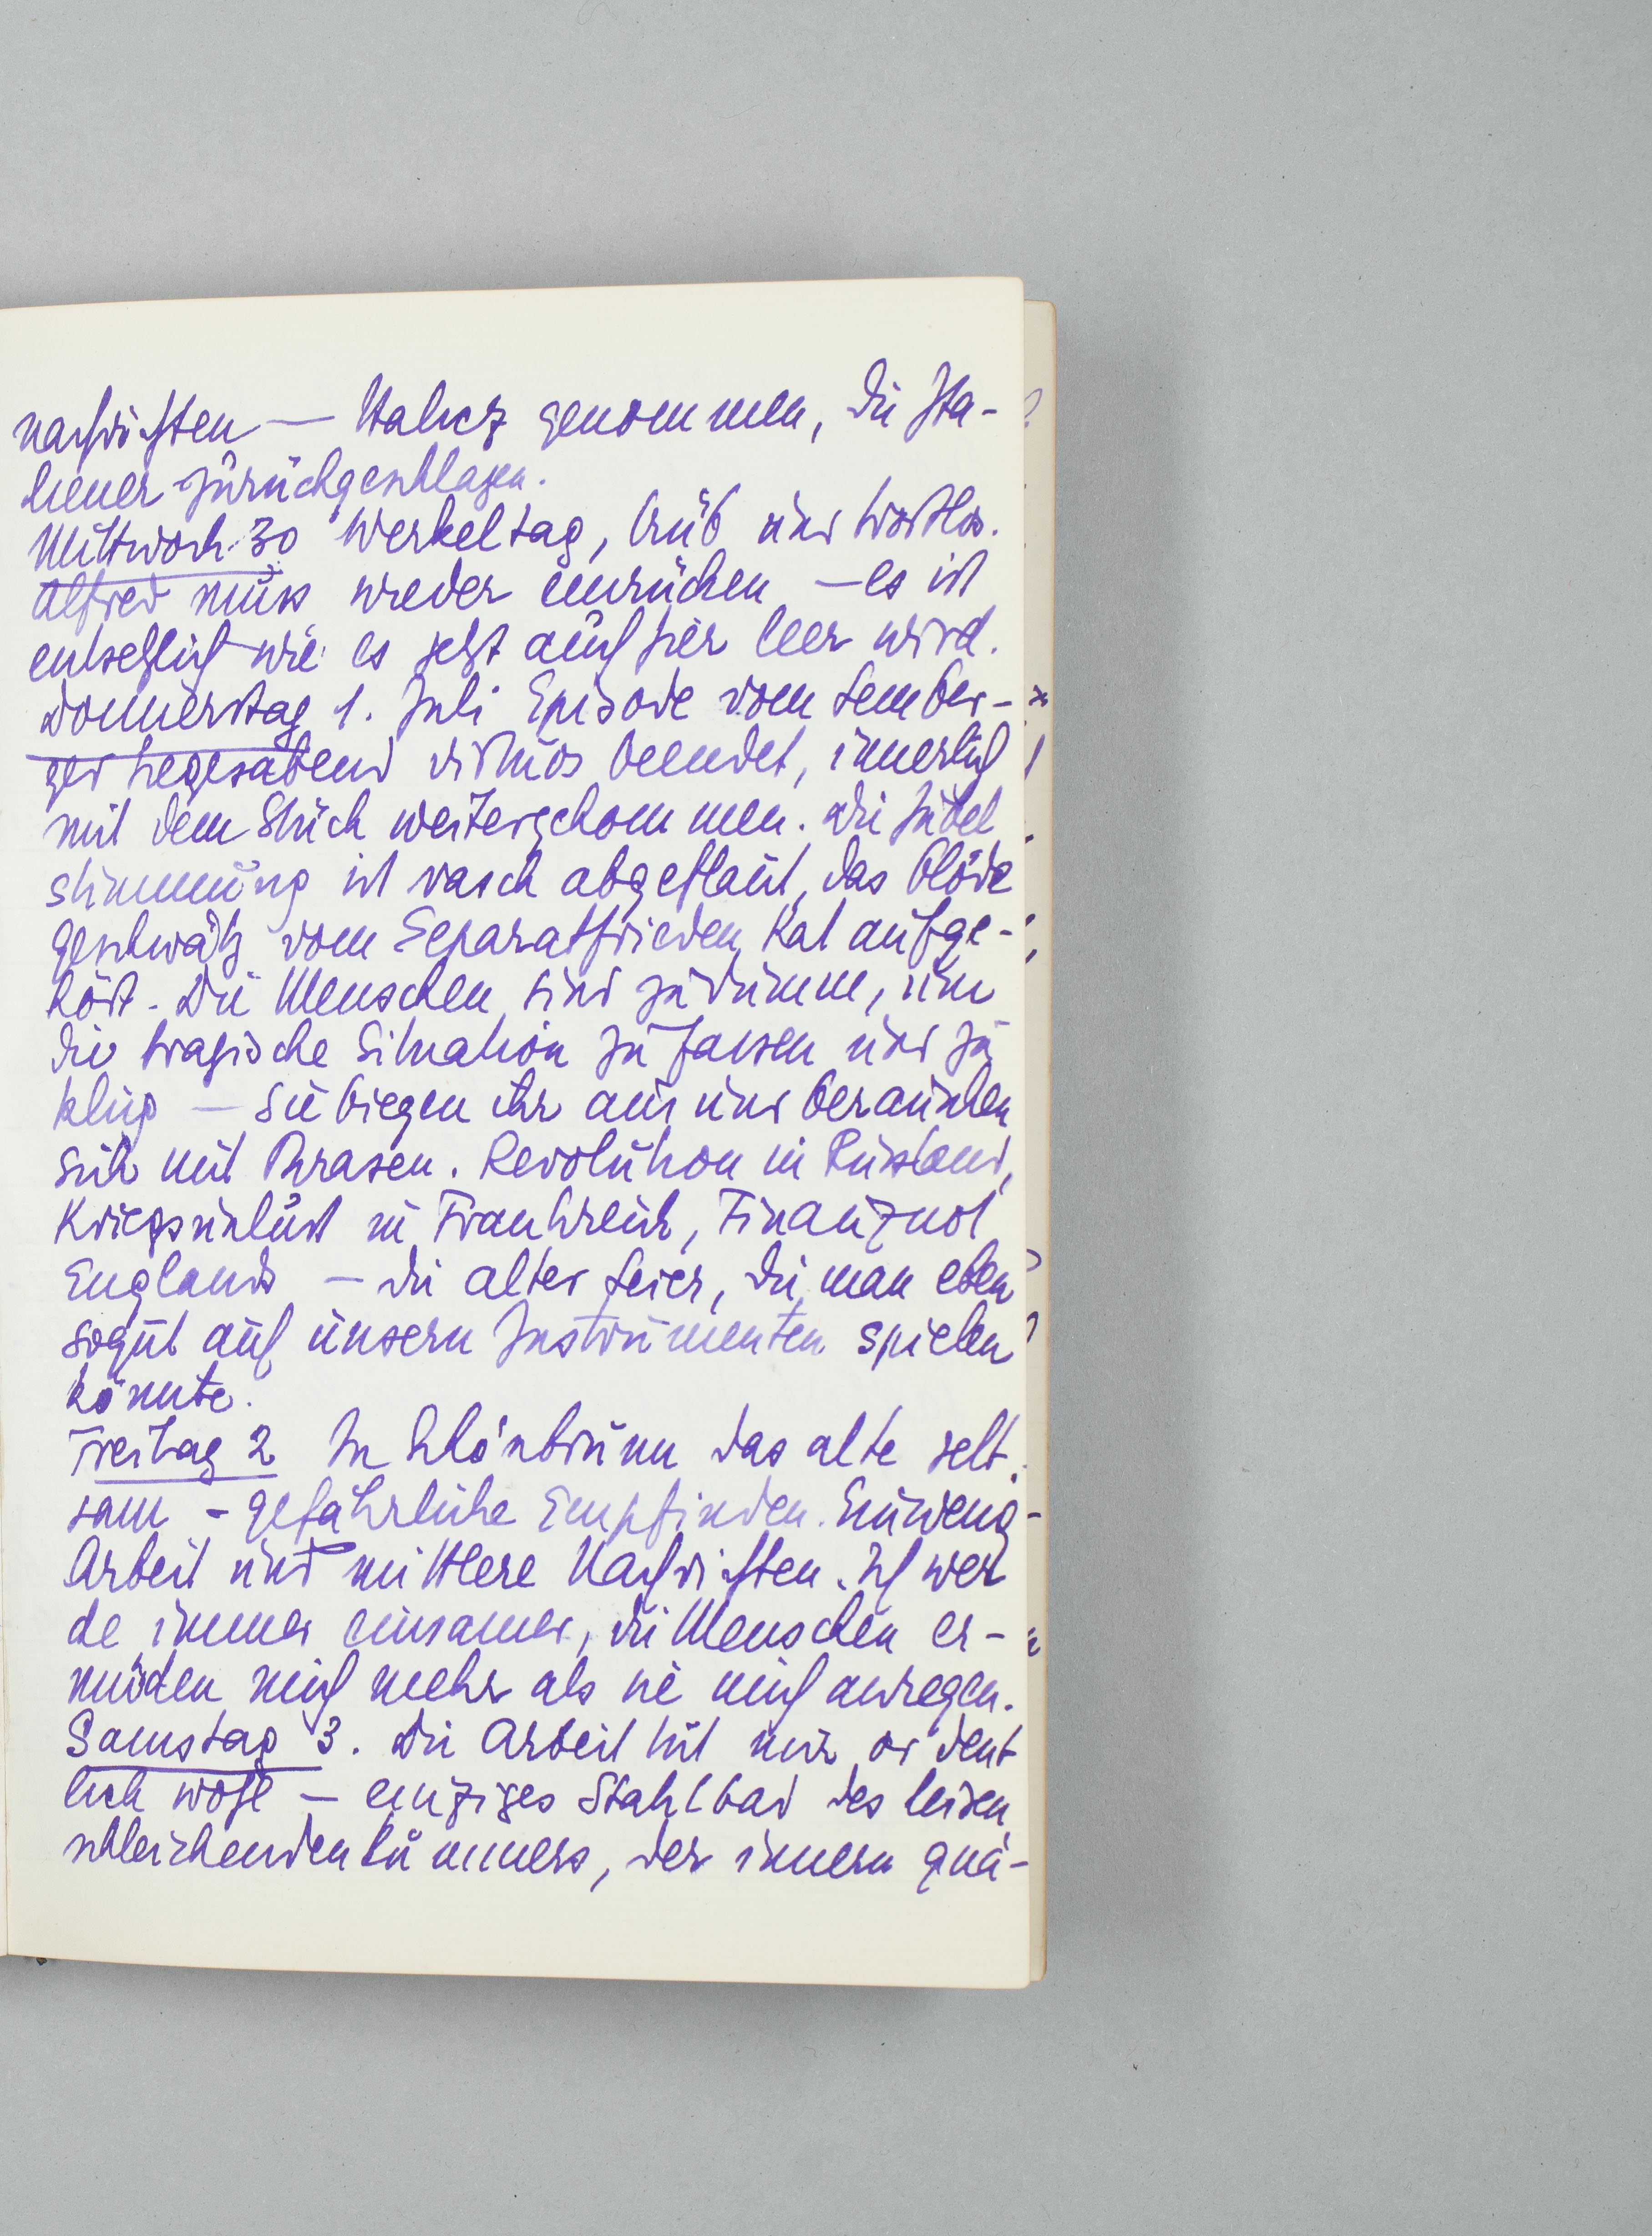 nachrichten — Halicz genommen, die Ita-
liener zurückgeschlagen.
Mittwoch 30 Werkeltag, trüb und trostlos.
Alfred muss wieder einrücken — es ist
entsetzlich wie es jetzt auch hier leer wird.
Donnerstag 1. Juli Episode vom Lember-
ger Siegesabend virtuos beendet, innerlich
mit dem Stück weitergekommen. Die Jubel
stimmung ist rasch abgeflaut, das blöde
Geschwätz vom Separatfrieden hat aufge-
hört. Die Menschen sind zu dumm, um
die tragische Situation zu fassen und zu
klug — sie biegen ihr aus und berauschen
sich mit Phrasen. Revolution in Russland,
Kriegsunlust in Frankreich, Finanznot
Englands — die alte Leier, die man eben
sogut auf unsern Instrumenten spielen
könnte.
Freitag 2 In Schönbrunn das alte selt
sam - gefährliche Empfinden. Ein wenig
Arbeit und mittlere Nachrichten. Ich wer
de immer einsamer, die Menschen er-
müden mich mehr als sie mich anregen.
Samstag 3. Die Arbeit tut mir ordent
lich wohl — einziges Stahlbad des leisen
schleichenden Kummers, der innern Quä-